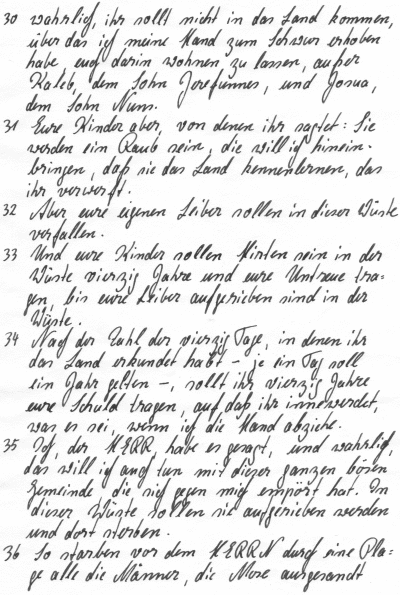 30 wahrlich, ihr sollt nicht in das Land kommen,
über das ich meine Hand zum Schwur erhoben
habe euch darin wohnen zu lassen, außer
Kaleb, dem Sohn Jerefunnes, und Josua,
dem Sohn Nuns.
31 Eure Kinder aber, von denen ihr sagtet: Sie
werden ein Raub sein, die will ich hinein-
bringen, daß sie das Land kennenlernen, das
ihr verwerft.
32 Aber eure eigenen Leiber sollen in dieser Wüste
verfallen.
33 Und eure Kinder sollen Hirten sein in der
Wüste vierzig Jahre und eure Untreue tra=
gen, bis eure Leiber aufgerieben sind in der
Wüste.
34 Nach der Zahl der vierzig Tage, in denen ihr
das Land erkundet habt – je ein Tag soll
ein Jahr gelten –, sollt ihr vierzig Jahre
eure Schuld tragen, auf daß ihr innewerdet,
was es sei, wenn ich die Hand abziehe.
35 Ich, der HERR, habe es gesagt, und wahrlich,
das will ich auch tun mit dieser ganzen bösen
Gemeinde, die sich gegen mich empört hat. In
dieser Wüste sollen sie aufgerieben werden
und dort sterben.
36 So starben vor dem HERRN durch eine Pla=
ge alle die Männer, die Mose ausgesandt